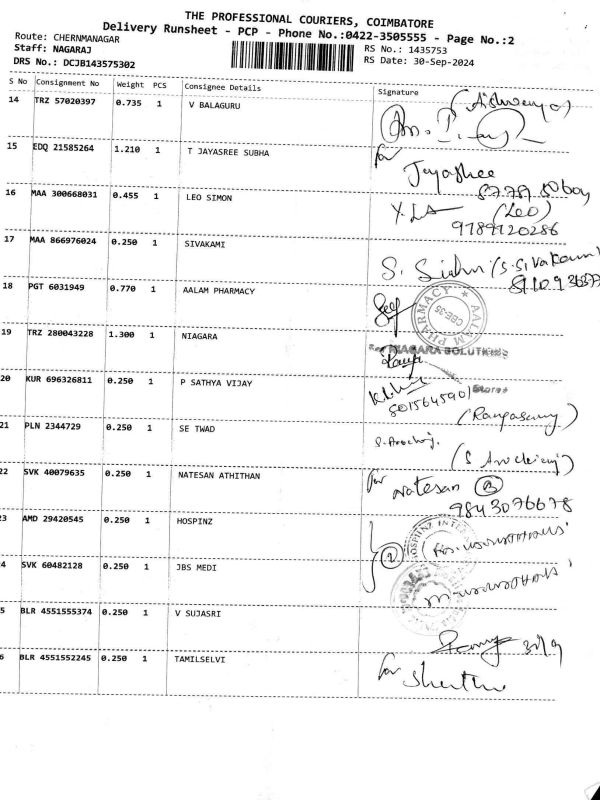 THE PROFESSIONAL COURIERS, COIMBATORE
Delivery Runsheet - PCP - Phone No.:0422-3505555 - Page No.:2
Route: CHERNMANAGAR
Staff: NAGARAJ
DRS No.: DCJB143575302
RS No.: 1435753
RS Date: 30-Sep-2024
S No Consignment No Weight PCS Consignee Details Signature
14 TRZ 57020397 0.735 1 V BALAGURU
15 EDQ 21585264 1.210 1 T JAYASREE SUBHA for Jayashree
16 MAA 300668031 0.455 1 LEO SIMON (Leo)
9789720286
17 MAA 866976024 0.250 1 SIVAKAMI (S. Sivakami)
18 PGT 6031949 0.770 1 AALAM PHARMACY AALAM PHARMACY CBE-35
19 TRZ 280043228 1.300 1 NIAGARA NIAGARA SOLUTIONS
20 KUR 696326811 0.250 1 P SATHYA VIJAY
8015645901 (Rangasamy)
21 PLN 2344729 0.250 1 SE TWAD
22 SVK 40079635 0.250 1 NATESAN ATHITHAN for Natesan
9843076678
23 AMD 29420545 0.250 1 HOSPINZ HOSPINZ
4 SVK 60482128 0.250 1 JBS MEDI
5 BLR 4551555374 0.250 1 V SUJASRI 30/9
6 BLR 4551552245 0.250 1 TAMILSELVI for